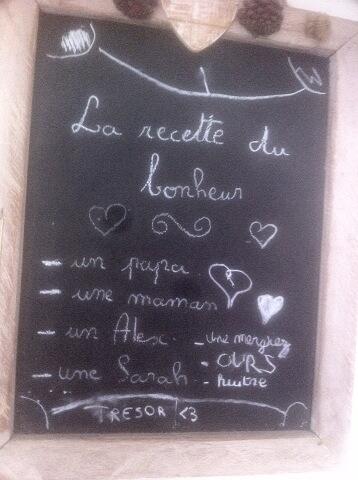 La recette du
bonheur
- un papa
- une maman
- un Alex.
- une Sarah.
- une merguez
- OURS
- huitre
TRESOR <3